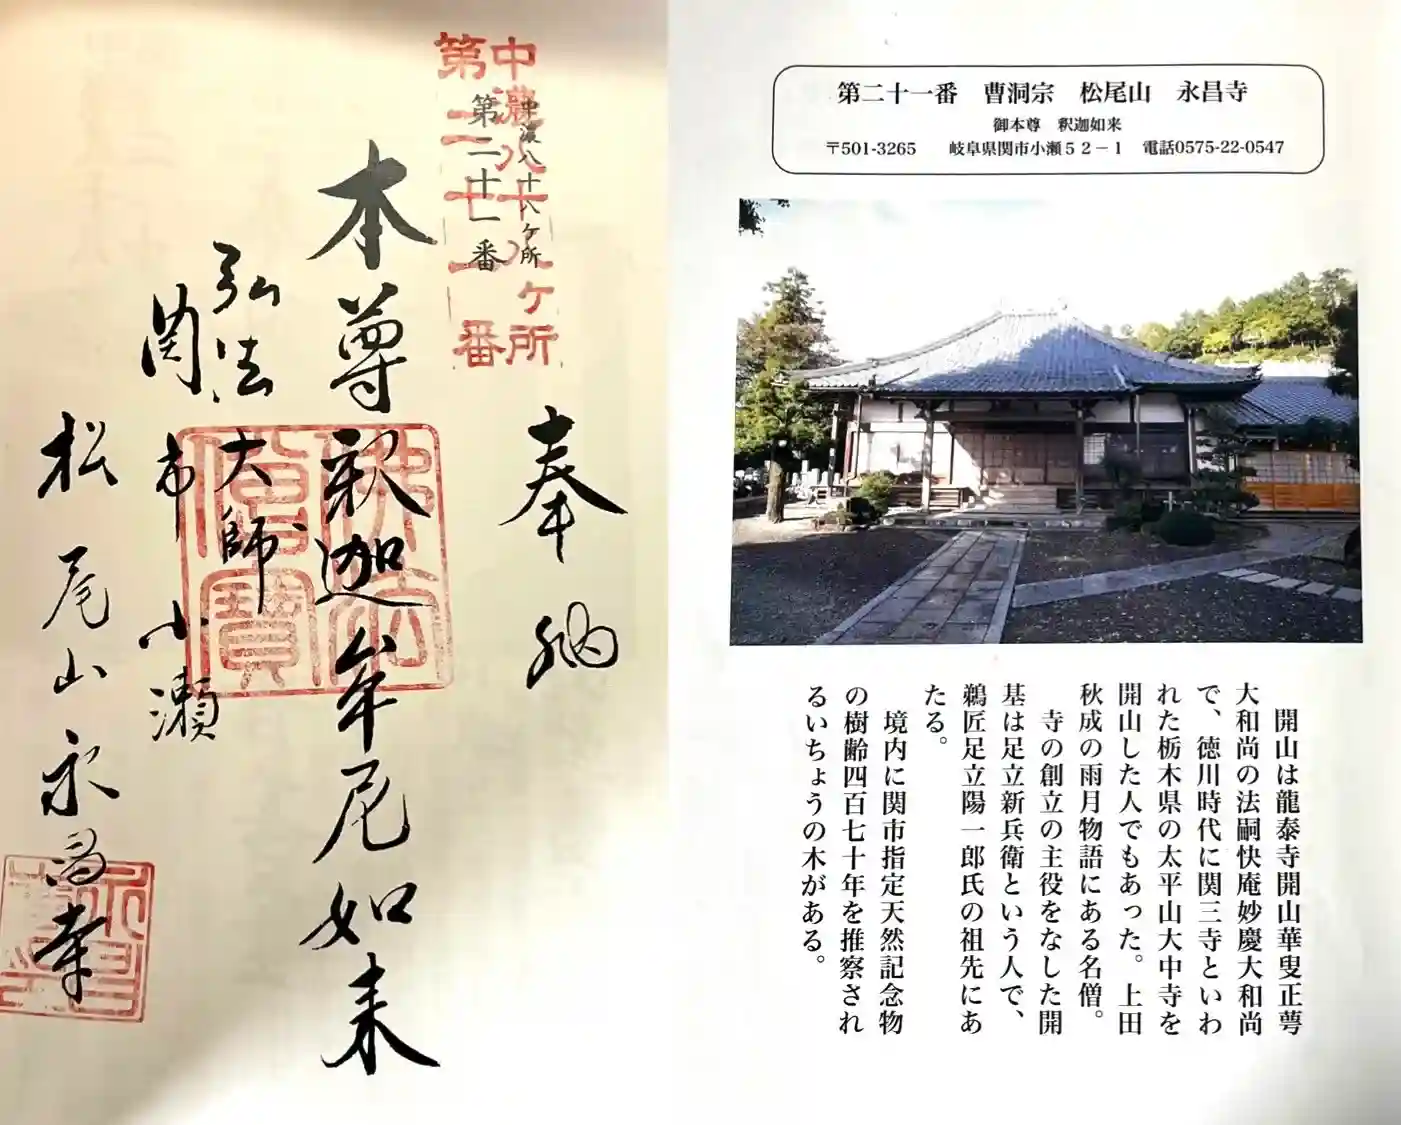 中濃八十八ヶ所
第二十一番
中濃八十八ヶ所
第二十一番
奉納
本尊釈迦牟尼如来
弘法大師
関市小瀬
松尾山永昌寺
佛法
僧寳
第二十一番　曹洞宗　松尾山　永昌寺
御本尊　釈迦如来
〒501-3265　岐阜県関市小瀬５２－１　電話0575-22-0547
開山は龍泰寺開山華叟正萼
大和尚の法嗣快庵妙慶大和尚
で、徳川時代に関三寺といわ
れた栃木県の太平山大中寺を
開山した人でもあった。上田
秋成の雨月物語にある名僧。
寺の創立の主役をなした開
基は足立新兵衛という人で、
鵜匠足立陽一郎氏の祖先にあ
たる。
境内に関市指定天然記念物
の樹齢四百七十年を推察され
るいちょうの木がある。